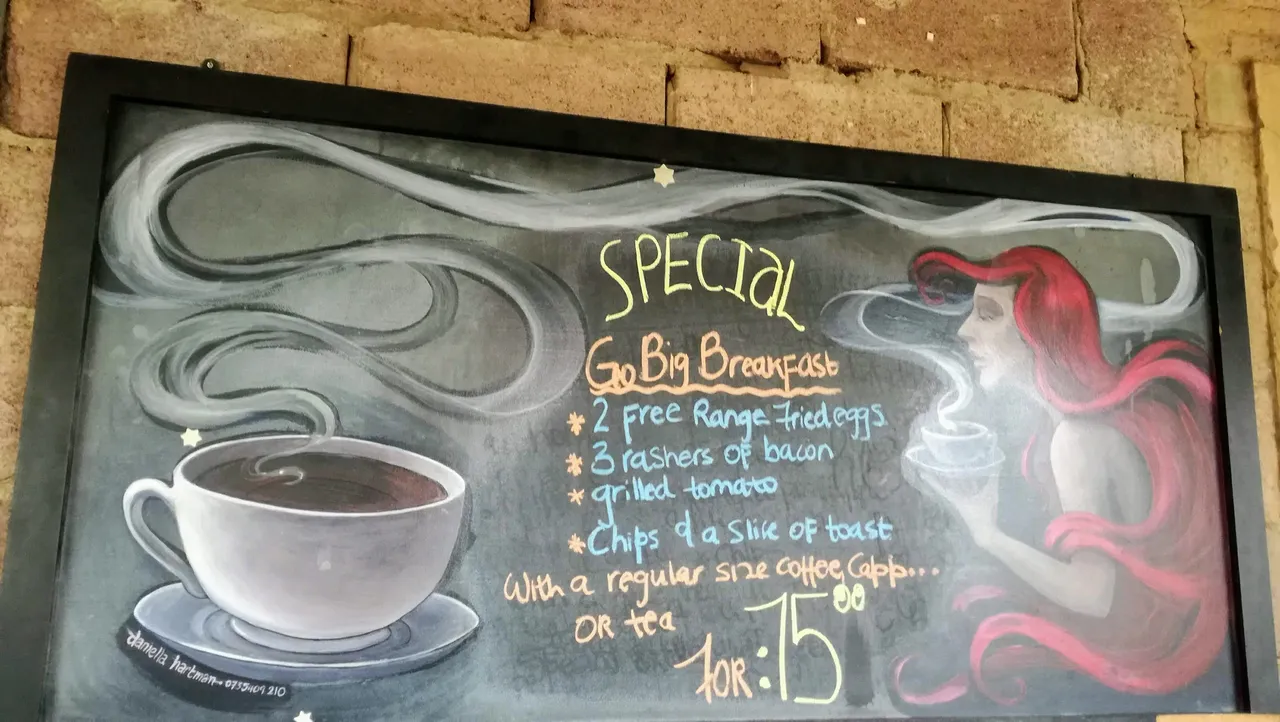 SPECIaL
Go Big Breakfast
* 2 free Range Fried eggs
* 3 rashers of bacon
* grilled tomato
* Chips & a Slice of toast
With a regular size coffee, Capp...
OR tea
FOR: 75⁰⁰
daniella hartman